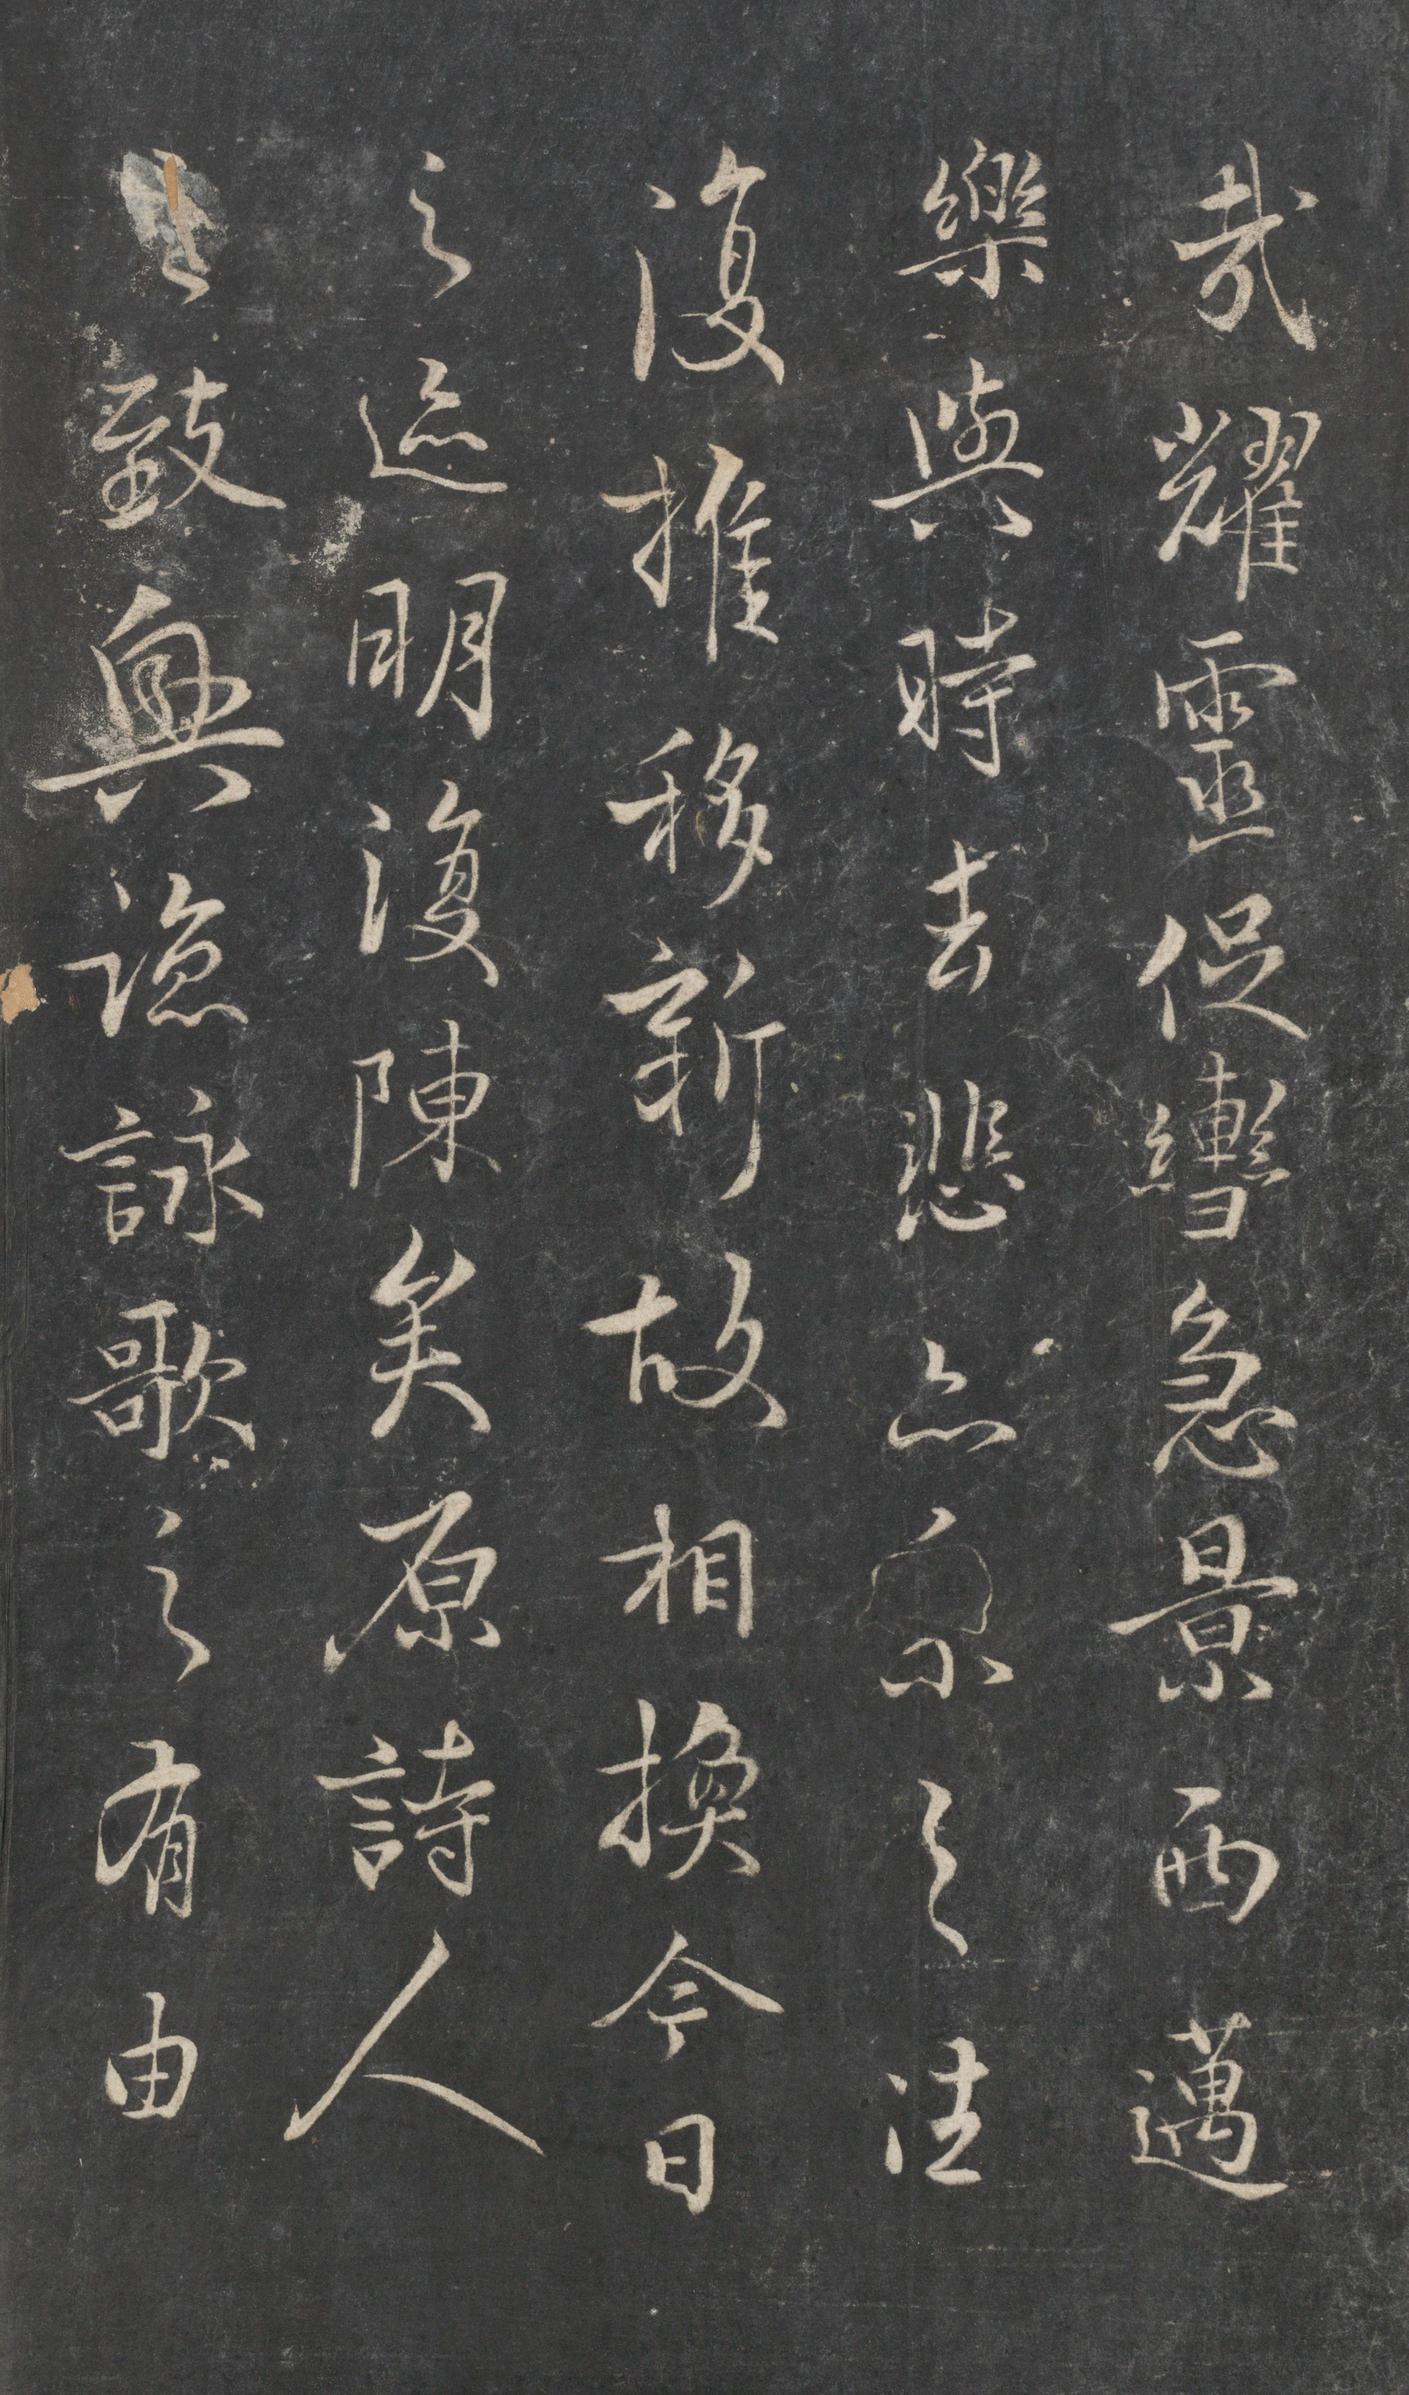 哉耀靈促轡急景西邁
樂與時去悲亦系之往
復推移新故相換今日
之迹明復陳矣原詩人
之致興諒詠歌之有由